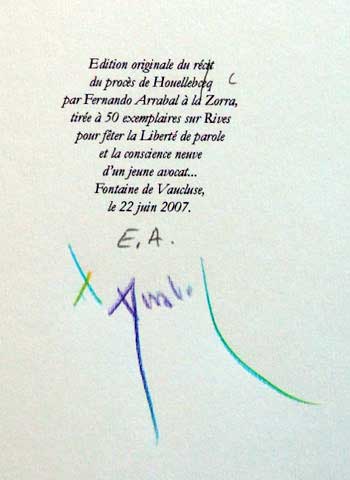 Edition originale du récit
du procès de Houellebecq c
par Fernando Arrabal à la Zorra,
tirée à 50 exemplaires sur Rives
pour fêter la Liberté de parole
et la conscience neuve
d'un jeune avocat...
Fontaine de Vaucluse,
le 22 juin 2007.
E.A.
Arrabal